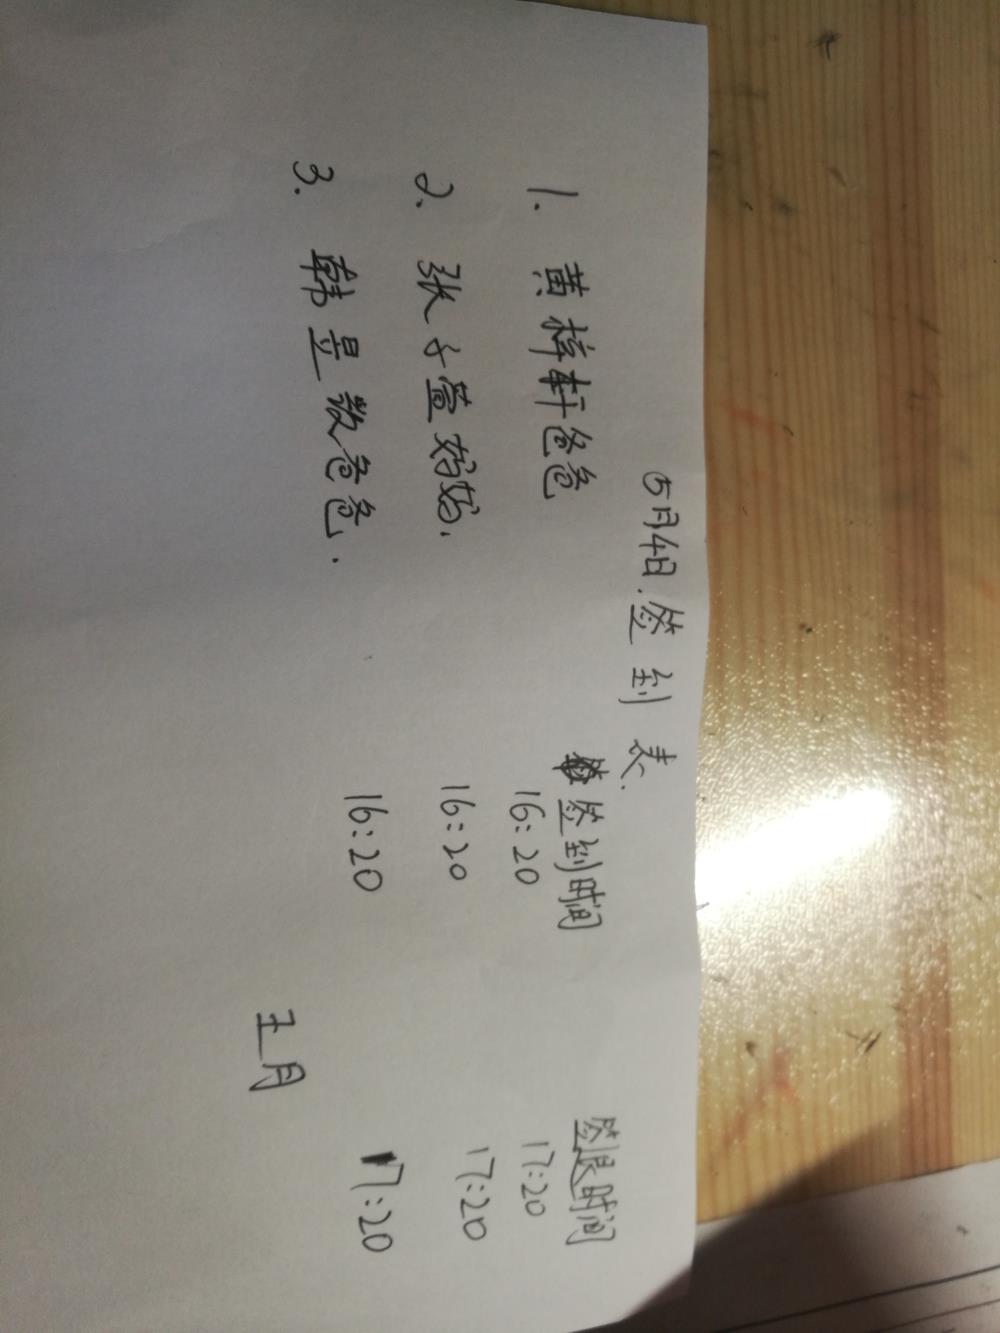 5月4日.签到表.
签到时间 签退时间
1. 黄梓轩爸爸 16:20 17:20
2. 张子萱妈妈. 16:20 17:20
3. 韩昱散爸爸. 16:20 17:20
王月